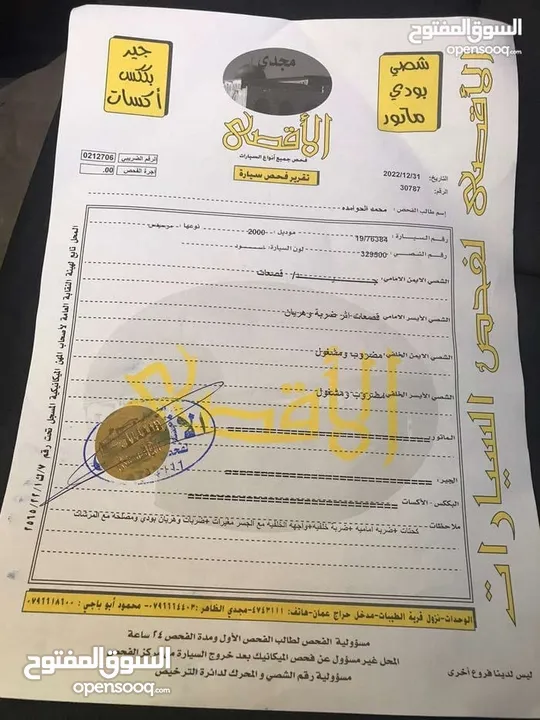 السوق المفتوح
opensooq.com
جير
بكس
أكسات
مجدي
الأقصى
فحص جميع أنواع السيارات
تقرير فحص سيارة
شصي
بودي
ماتور
الأقصى لفحص السيارات
الرقم الضريبي 0212706
أجرة الفحص .00
التاريخ: 2022/12/31
الرقم: 30787
إسم طالب الفحص: محمد الحوامده
رقم السيارة: 19/76384 موديل: 2000 نوعها: مرسيدس
رقم الشصي: 329500 لون السيارة:
الشصي الأيمن الأمامي: جيد / قصعات
الشصي الأيسر الأمامي: قصعات اثر ضربة وهريان
الشصي الأيمن الخلفي: مضروب ومشغول
الشصي الأيسر الخلفي: مضروب ومشغول
الماتور:
الجير:
البكس: الأكسات:
ملاحظات: +ضربة أمامية +ضربة خلفية+واجهة الخلفية مع الجسر مغيرات +ضربات وهريان بودي ومصلحة مع المرشات
الأقصى
المحل تابع لهيئة النقابة العامة لأصحاب المهن الميكانيكية المسجل تحت رقم
الوحدات-نزول قرية الطيبات-مدخل حراج عمان-هاتف: ٤٧٤٣١١١-مجدي الظاهر: ٠٧٩٦٦١٤٤٠٣-محمود أبو باجي: ٠٧٩٦٦١٨٦٠٠
مسؤولية الفحص لطالب الفحص الأول ومدة الفحص ٢٤ ساعة
المحل غير مسؤول عن فحص الميكانيك بعد خروج السيارة من مركز الفحص
مسؤولية رقم الشصي و المحرك لدائرة الترخيص
ليس لدينا فروع أخرى
السوق المفتوح
opensooq.com
السوق المفتوح
opensooq.com